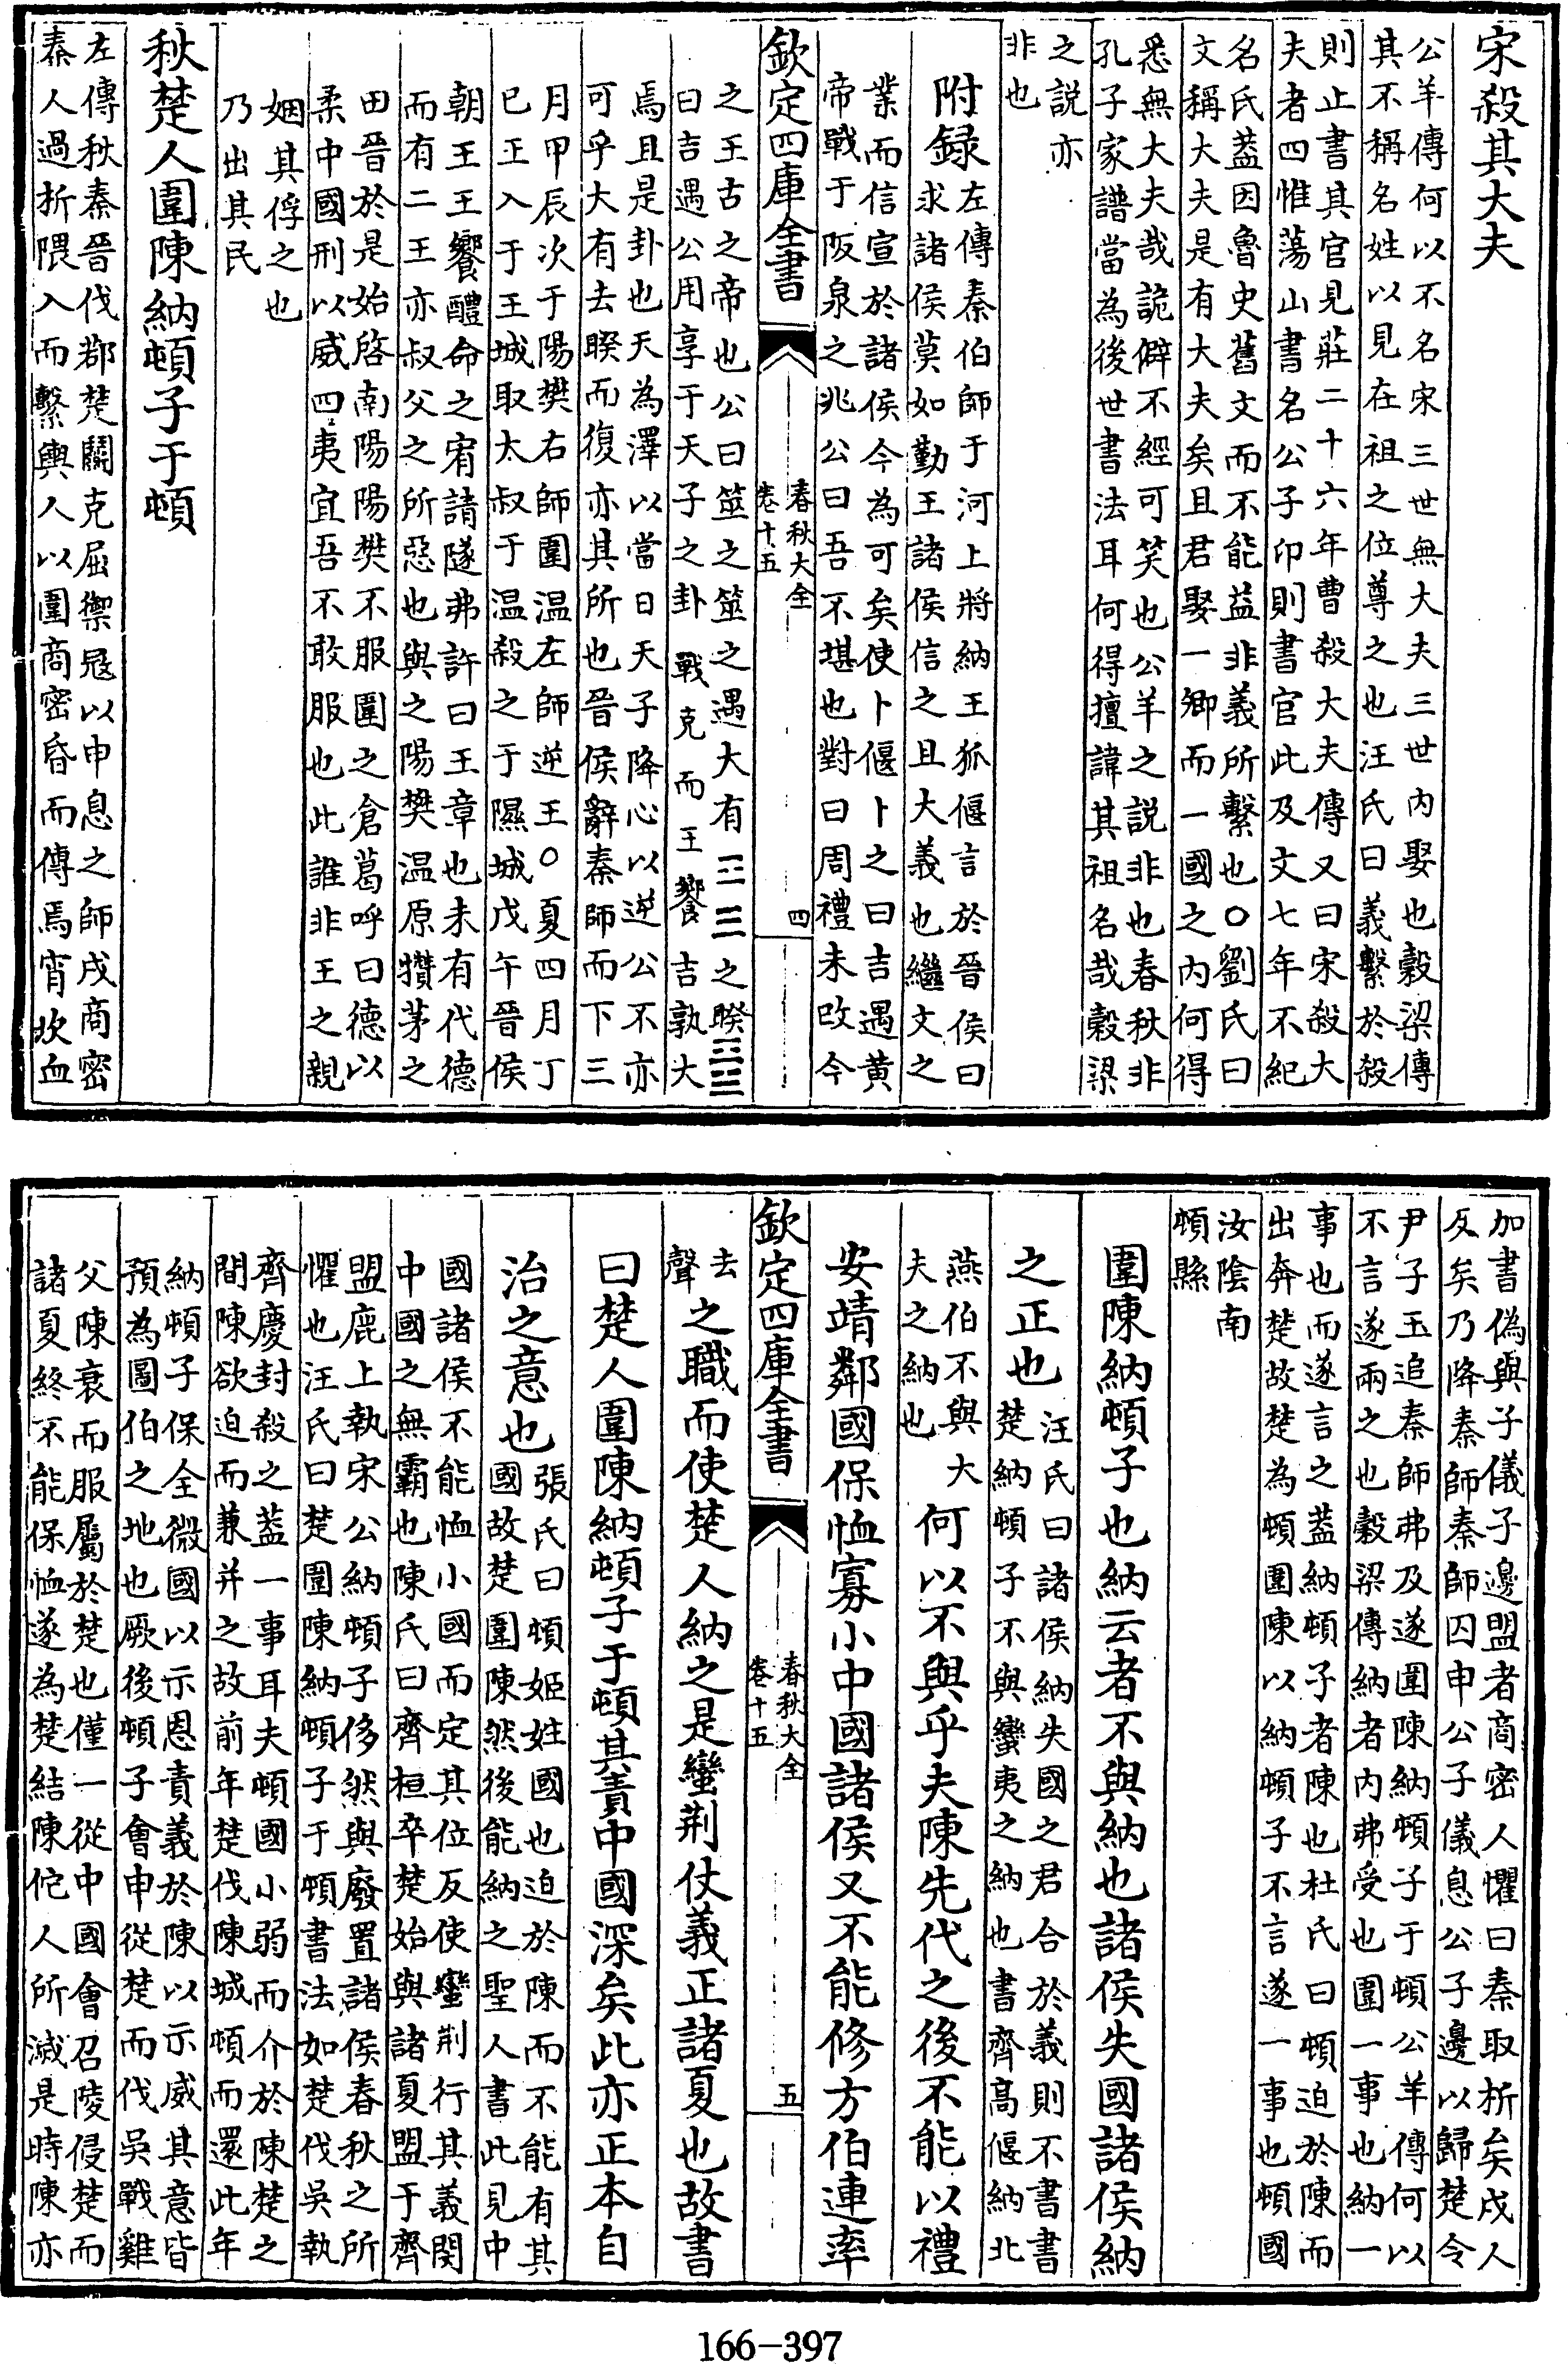 宋殺其大夫
公羊傳何以不名宋三世無大夫三世内娶也穀梁傳
其不稱名姓以見在祖之位尊之也汪氏曰義繫於殺
則止書其官見莊二十六年曹殺大夫傳又曰宋殺大
夫者四惟蕩山書名公子卬則書官此及文七年不紀
名氏葢因魯史舊文而不能益非義所繫也○劉氏曰
文稱大夫是有大夫矣且君娶一卿而一國之内何得
悉無大夫哉詭僻不經可笑也公羊之説非也春秋非
孔子家譜當為後世書法耳何得擅諱其祖名哉穀梁
之説亦
非也
附録
左傳秦伯師于河上將納王狐偃言於晉侯曰
求諸侯莫如勤王諸侯信之且大義也繼文之
業而信宣於諸侯今為可矣使卜偃卜之曰吉遇黃
帝戰于阪泉之兆公曰吾不堪也對曰周禮未改今
欽定四庫全書
春秋大全
卷十五
四
之王古之帝也公曰筮之筮之遇大有☰☲之睽☱☲
曰吉遇公用享于天子之卦戰克而王饗吉孰大
焉且是卦也天為澤以當日天子降心以逆公不亦
可乎大有去睽而復亦其所也晉侯辭秦師而下三
月甲辰次于陽樊右師圍温左師逆王○夏四月丁
巳王入于王城取太叔于温殺之于隰城戊午晉侯
朝王王饗醴命之宥請隧弗許曰王章也未有代德
而有二王亦叔父之所惡也與之陽樊温原攅茅之
田晉於是始啓南陽陽樊不服圍之倉葛呼曰德以
柔中國刑以威四夷宜吾不敢服也此誰非王之親
姻其俘之也
乃出其民
秋楚人圍陳納頓子于頓
左傳秋秦晉伐鄀楚鬬克屈禦冦以申息之師戍商密
秦人過析隈入而繫輿人以圍商密昏而傳焉宵坎血
加書偽與子儀子邊盟者商密人懼曰秦取析矣戍人
反矣乃降秦師秦師囚申公子儀息公子邊以歸楚令
尹子玉追秦師弗及遂圍陳納頓子于頓公羊傳何以
不言遂兩之也穀梁傳納者内弗受也圍一事也納一
事也而遂言之葢納頓子者陳也杜氏曰頓迫於陳而
出奔楚故楚為頓圍陳以納頓子不言遂一事也頓國
汝隂南
頓縣
圍陳納頓子也納云者不與納也諸侯失國諸侯納
之正也
汪氏曰諸侯納失國之君合於義則不書書
楚納頓子不與蠻夷之納也書齊高偃納北
燕伯不與大
夫之納也
何以不與乎夫陳先代之後不能以禮
安靖鄰國保恤寡小中國諸侯又不能修方伯連率
欽定四庫全書
春秋大全
卷十五
五
去
聲
之職而使楚人納之是蠻荆仗義正諸夏也故書
曰楚人圍陳納頓子于頓其責中國深矣此亦正本自
治之意也
張氏曰頓姬姓國也迫於陳而不能有其
國故楚圍陳然後能納之聖人書此見中
國諸侯不能恤小國而定其位反使蠻荆行其義閔
中國之無霸也陳氏曰齊桓卒楚始與諸夏盟于齊
盟鹿上執宋公納頓子侈然與廢置諸侯春秋之所
懼也汪氏曰楚圍陳納頓子于頓書法如楚伐吳執
齊慶封殺之葢一事耳夫頓國小弱而介於陳楚之
間陳欲迫而兼并之故前年楚伐陳城頓而還此年
納頓子保全微國以示恩責義於陳以示威其意皆
預為圖伯之地也厥後頓子會申從楚而伐吳戰雞
父陳衰而服屬於楚也僅一從中國會召陵侵楚而
諸夏終不能保恤遂為楚結陳佗人所滅是時陳亦
166-397